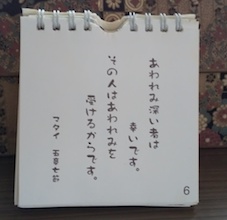 あわれみ深い者は
幸いです。
その人はあわれみを
受けるからです。
マタイ 五章七節
6